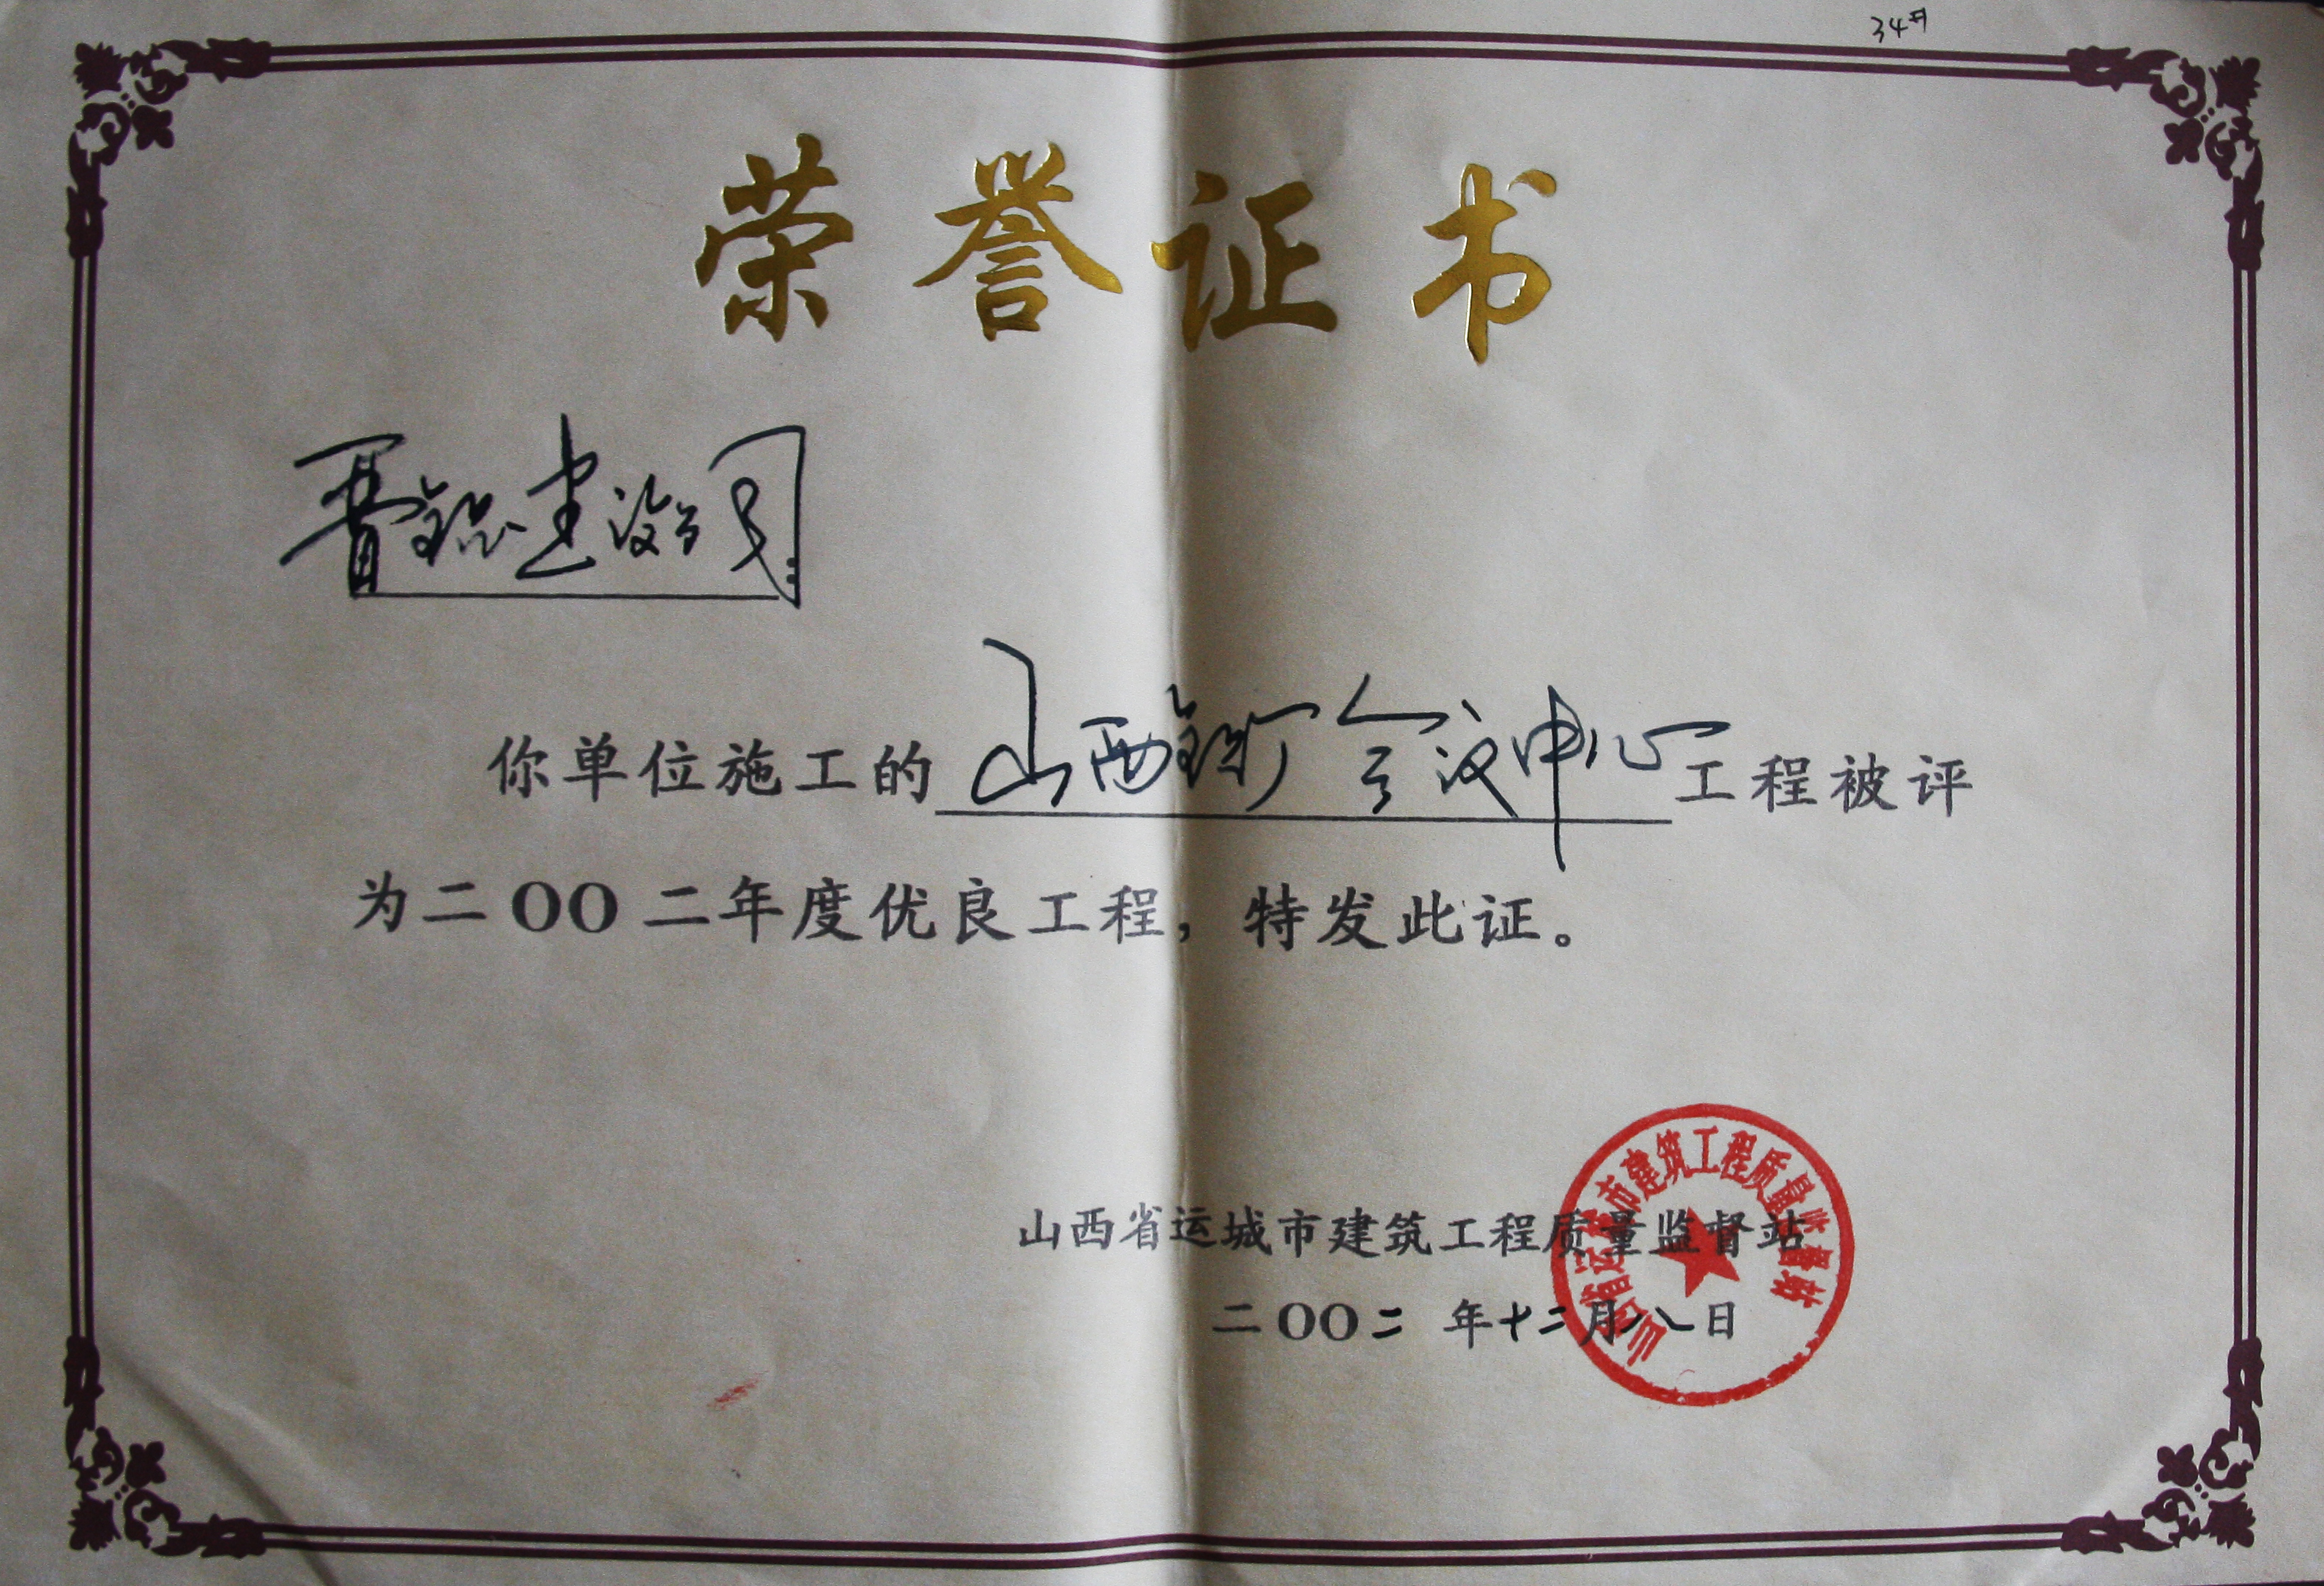 34#
荣誉证书
晋铝建设公司：
你单位施工的山西铝厂会议中心工程被评
为二OO二年度优良工程，特发此证。
山西省运城市建筑工程质量监督站
二OO二 年十二月八日
山西省运城市建筑工程质量监督站